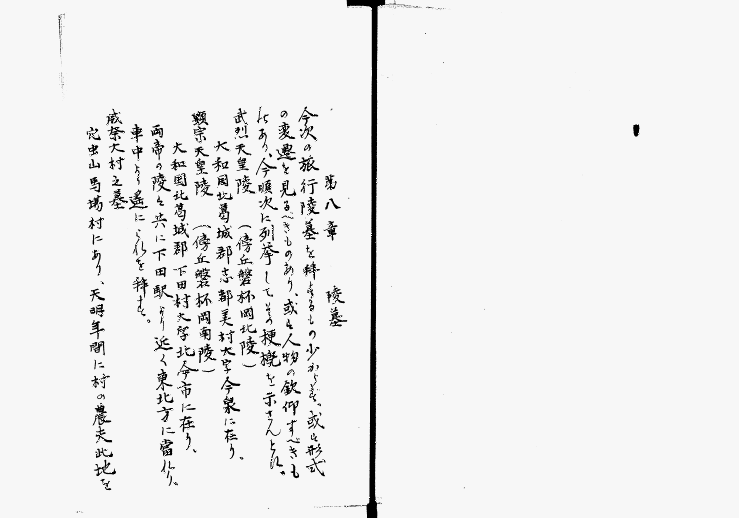 第八章　陵墓
今次の旅行陵墓を拝するもの少からず。或は形式
の変遷を見るべきものあり、或は人物の欽仰すべきも
のあり、今順次に列挙してその梗概を示さんとす。
武烈天皇陵　（傍丘磐杯岡北陵）
大和国北葛城郡志都美村大字今泉に在り。
顕宗天皇陵　（傍丘磐杯岡南陵）
大和国北葛城郡下田村大字北今市に在り、
両帝の陵は共に下田駅より近く東北方に當れり。
車中より遥に之を拝す。
威奈大村之墓
穴虫山馬場村にあり、天明年間に村の農夫此地を